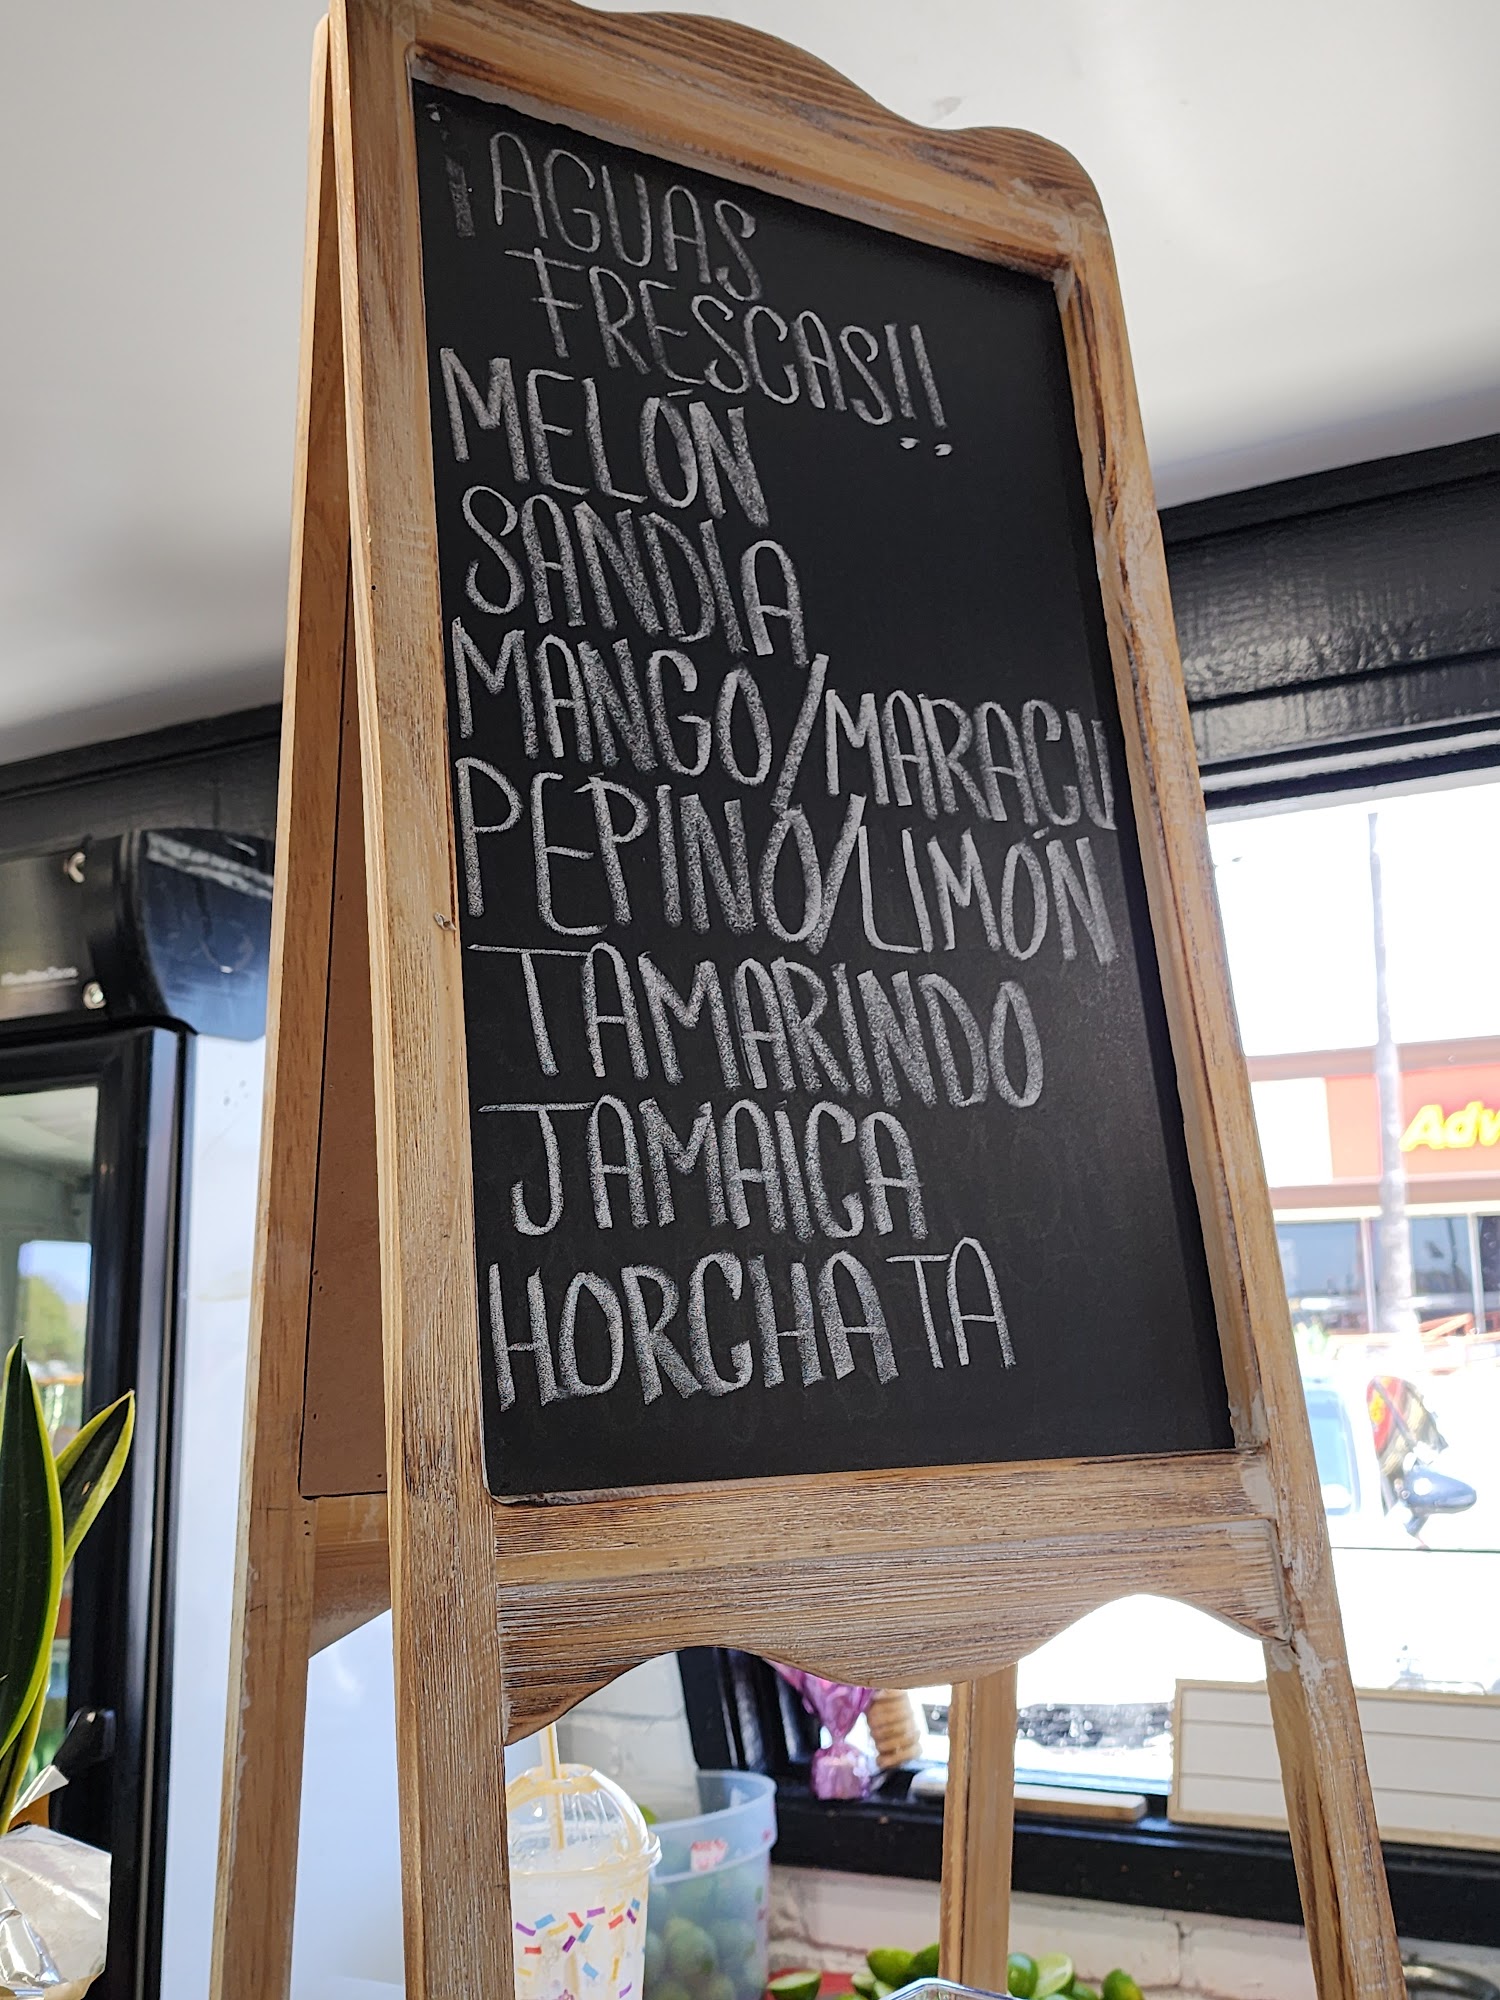 ¡AGUAS
FRESCAS!!
MELÓN
SANDIA
MANGO/MARACU
PEPINO/LIMÓN
TAMARINDO
JAMAICA
HORCHATA
Adv